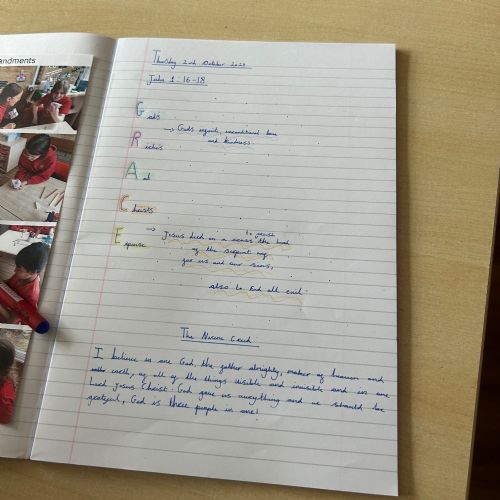 andments
Thursday 2nd October 2025
John 1:16-18
Gods
→ Gods infinite, unconditional love
and kindness.
Riches
At
Christs
to crush
Expense → Jesus died on a cross the head
of the serpent
for us and our sins,
also to End all evil.
The Nicene Creed
I believe in one God, the father almighty, maker of heaven and
earth, of all of the things visible and invisible and in one
Lord Jesus Christ. God gave us everything and we should be
grateful, God is three people in one!